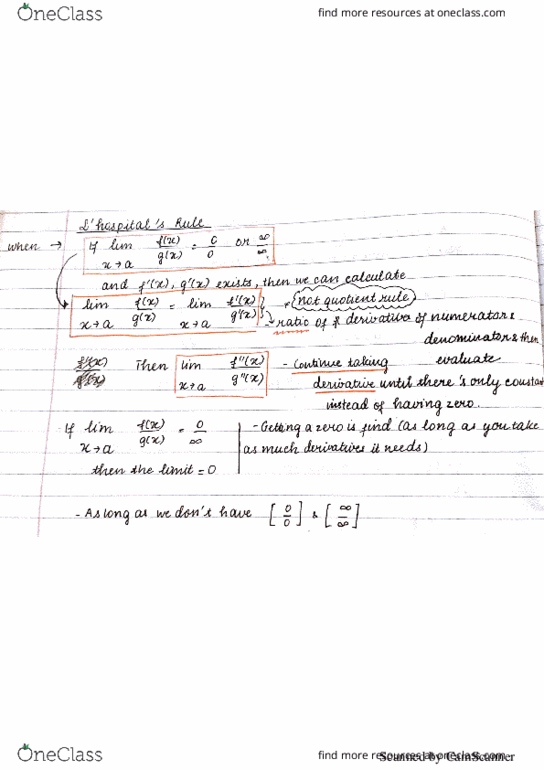 OneClass
find more resources at oneclass.com
L'hospital's Rule
when → If lim x→a f(x)/g(x) = 0/0 or ∞/∞
and f'(x), g'(x) exists, then we can calculate
lim x→a f(x)/g(x) = lim x→a f'(x)/g'(x) * Not quotient rule
→ ratio of derivative of numerator &
denominator & then
evaluate
Then lim x→a f''(x)/g''(x) - Continue taking
derivative until there's only constant
instead of having zero.
- If lim x→a f(x)/g(x) = 0/∞
then the limit = 0
- Getting a zero is find (as long as you take
as much derivatives it needs)
- As long as we don's have [0/0] & [∞/∞]
OneClass
find more resources at oneclass.com
Scanned by CamScanner